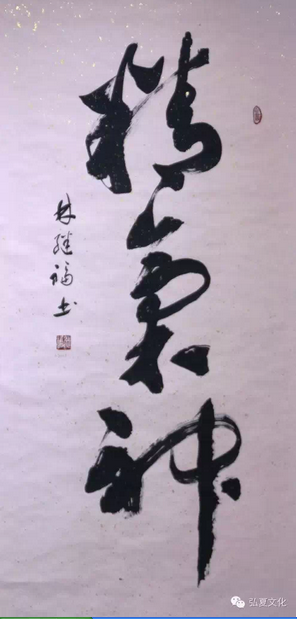 精氣神
林继福书
弘夏文化